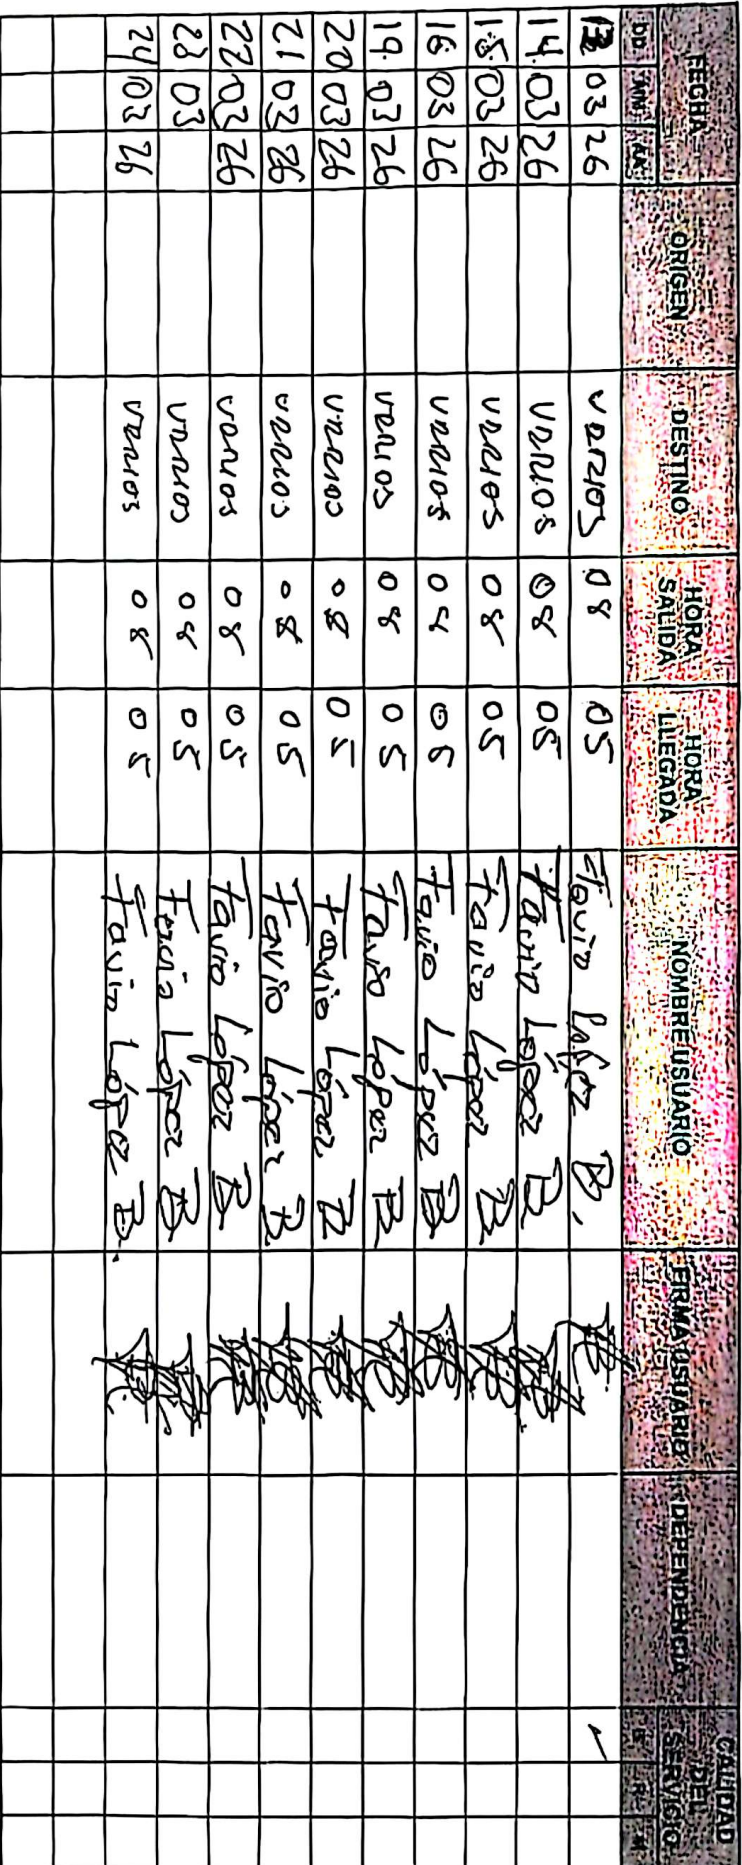 FECHA ORIGEN DESTINO HORA SALIDA HORA LLEGADA NOMBRE USUARIO FIRMA USUARIO DEPENDENCIA CALIDAD DEL SERVICIO
DD MM AA B R M
13 03 26 varios 08 05 Favio López B.
14 03 26 varios 08 05 Favio López B
15 03 26 varios 08 05 Favio López B
16 03 26 varios 08 05 Favio López B
19 03 26 varios 08 05 Favio López B
20 03 26 varios 08 05 Favio López B
21 03 26 varios 08 05 Favio López B
22 03 26 varios 08 05 Favio López B
23 03 varios 08 05 Favio López B
24 03 26 varios 08 05 Favio López B.